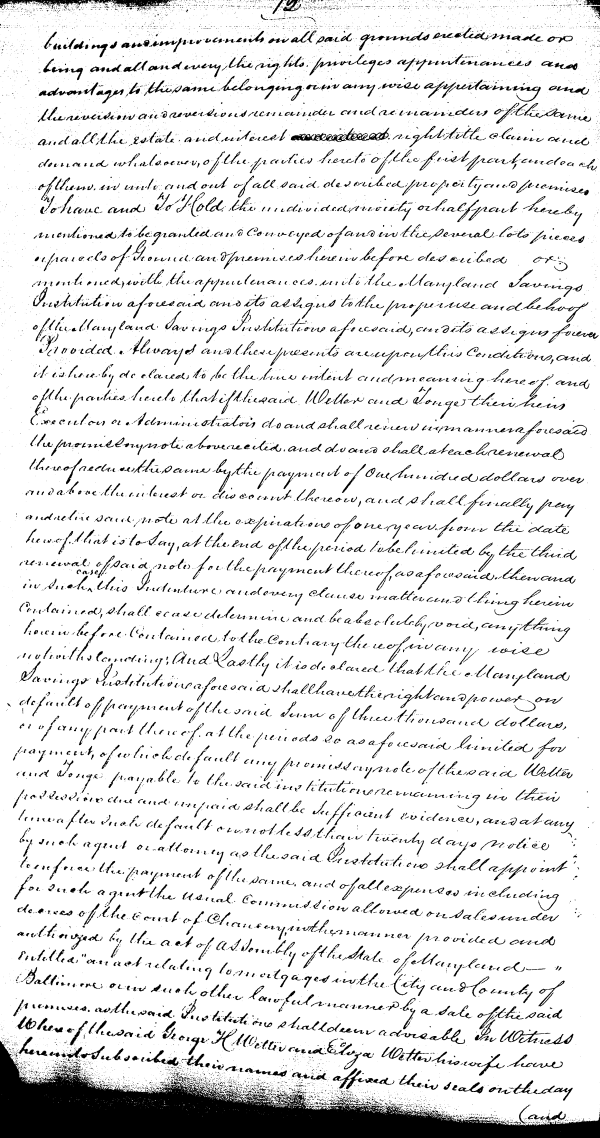 12
buildings and improvements on all said grounds erected made or
being and all and every the rights. privileges appurtenances and
advantages to the same belonging or in any wise appertaining and
the reversion and reversions remainder and remainders of the same
and all the estate and interest right title claim and
demand whatsoever, of the parties hereto of the first part, and each
of them in unto and out of all said described property and premises
To have and To Hold the undivided moiety or half part hereby
mentioned to be granted and conveyed of and in the several lots pieces
or parcels of Ground and premises herein before described or
mentioned, with the appurtenances unto the Maryland Savings
Institution aforesaid and its assigns to the proper use and behoof
of the Maryland Savings Institution aforesaid, and its assigns forever
Provided Always and these presents are upon this Condition, and
it is hereby declared to be the true intent and meaning hereof and
of the parties hereto that if the said Wetter and Tonge their heirs
Executors or Administrators do and shall renew in manner aforesaid
the promissory note above recited and do and shall at each renewal
thereof reduce the same by the payment of One hundred dollars over
and above the interest or discount thereon, and shall finally pay
and retire said note at the expiration of one year from the date
hereof that is to Say, at the end of the period to be limited by the third
renewal of said note for the payment thereof, as aforesaid then and
in such case this Indenture and every clause matter and thing herein
contained, shall cease determine and be absolutely void, any thing
herein before Contained to the Contrary thereof in any wise
notwithstanding; And Lastly it is declared that the Maryland
Savings Institution aforesaid shall have the right and power on
default of payment of the said Sum of three thousand dollars,
or of any part thereof, at the periods so as aforesaid limited for
payment, of which default any promissory note of the said Wetter
and Tonge payable to the said institution remaining in their
possession due and unpaid shall be Sufficient evidence, and at any
time after such default on not less than twenty days notice
by such agent or attorney as the said Institution shall appoint
to enforce the payment of the same, and of all expenses including
for such agent the usual Commission allowed on sales under
decrees of the Court of Chancery in the manner provided and
authorized by the act of Assembly of the State of Maryland — "
entitled "an act relating to mortgages in the City and County of
Baltimore or in such other lawful manner by a sale of the said
premises as the said Institution shall deem advisable In Witness
Whereof the said George H Wetter and Eliza Wetter his wife have
hereunto Subscribed their names and affixed their seals on the day
(and